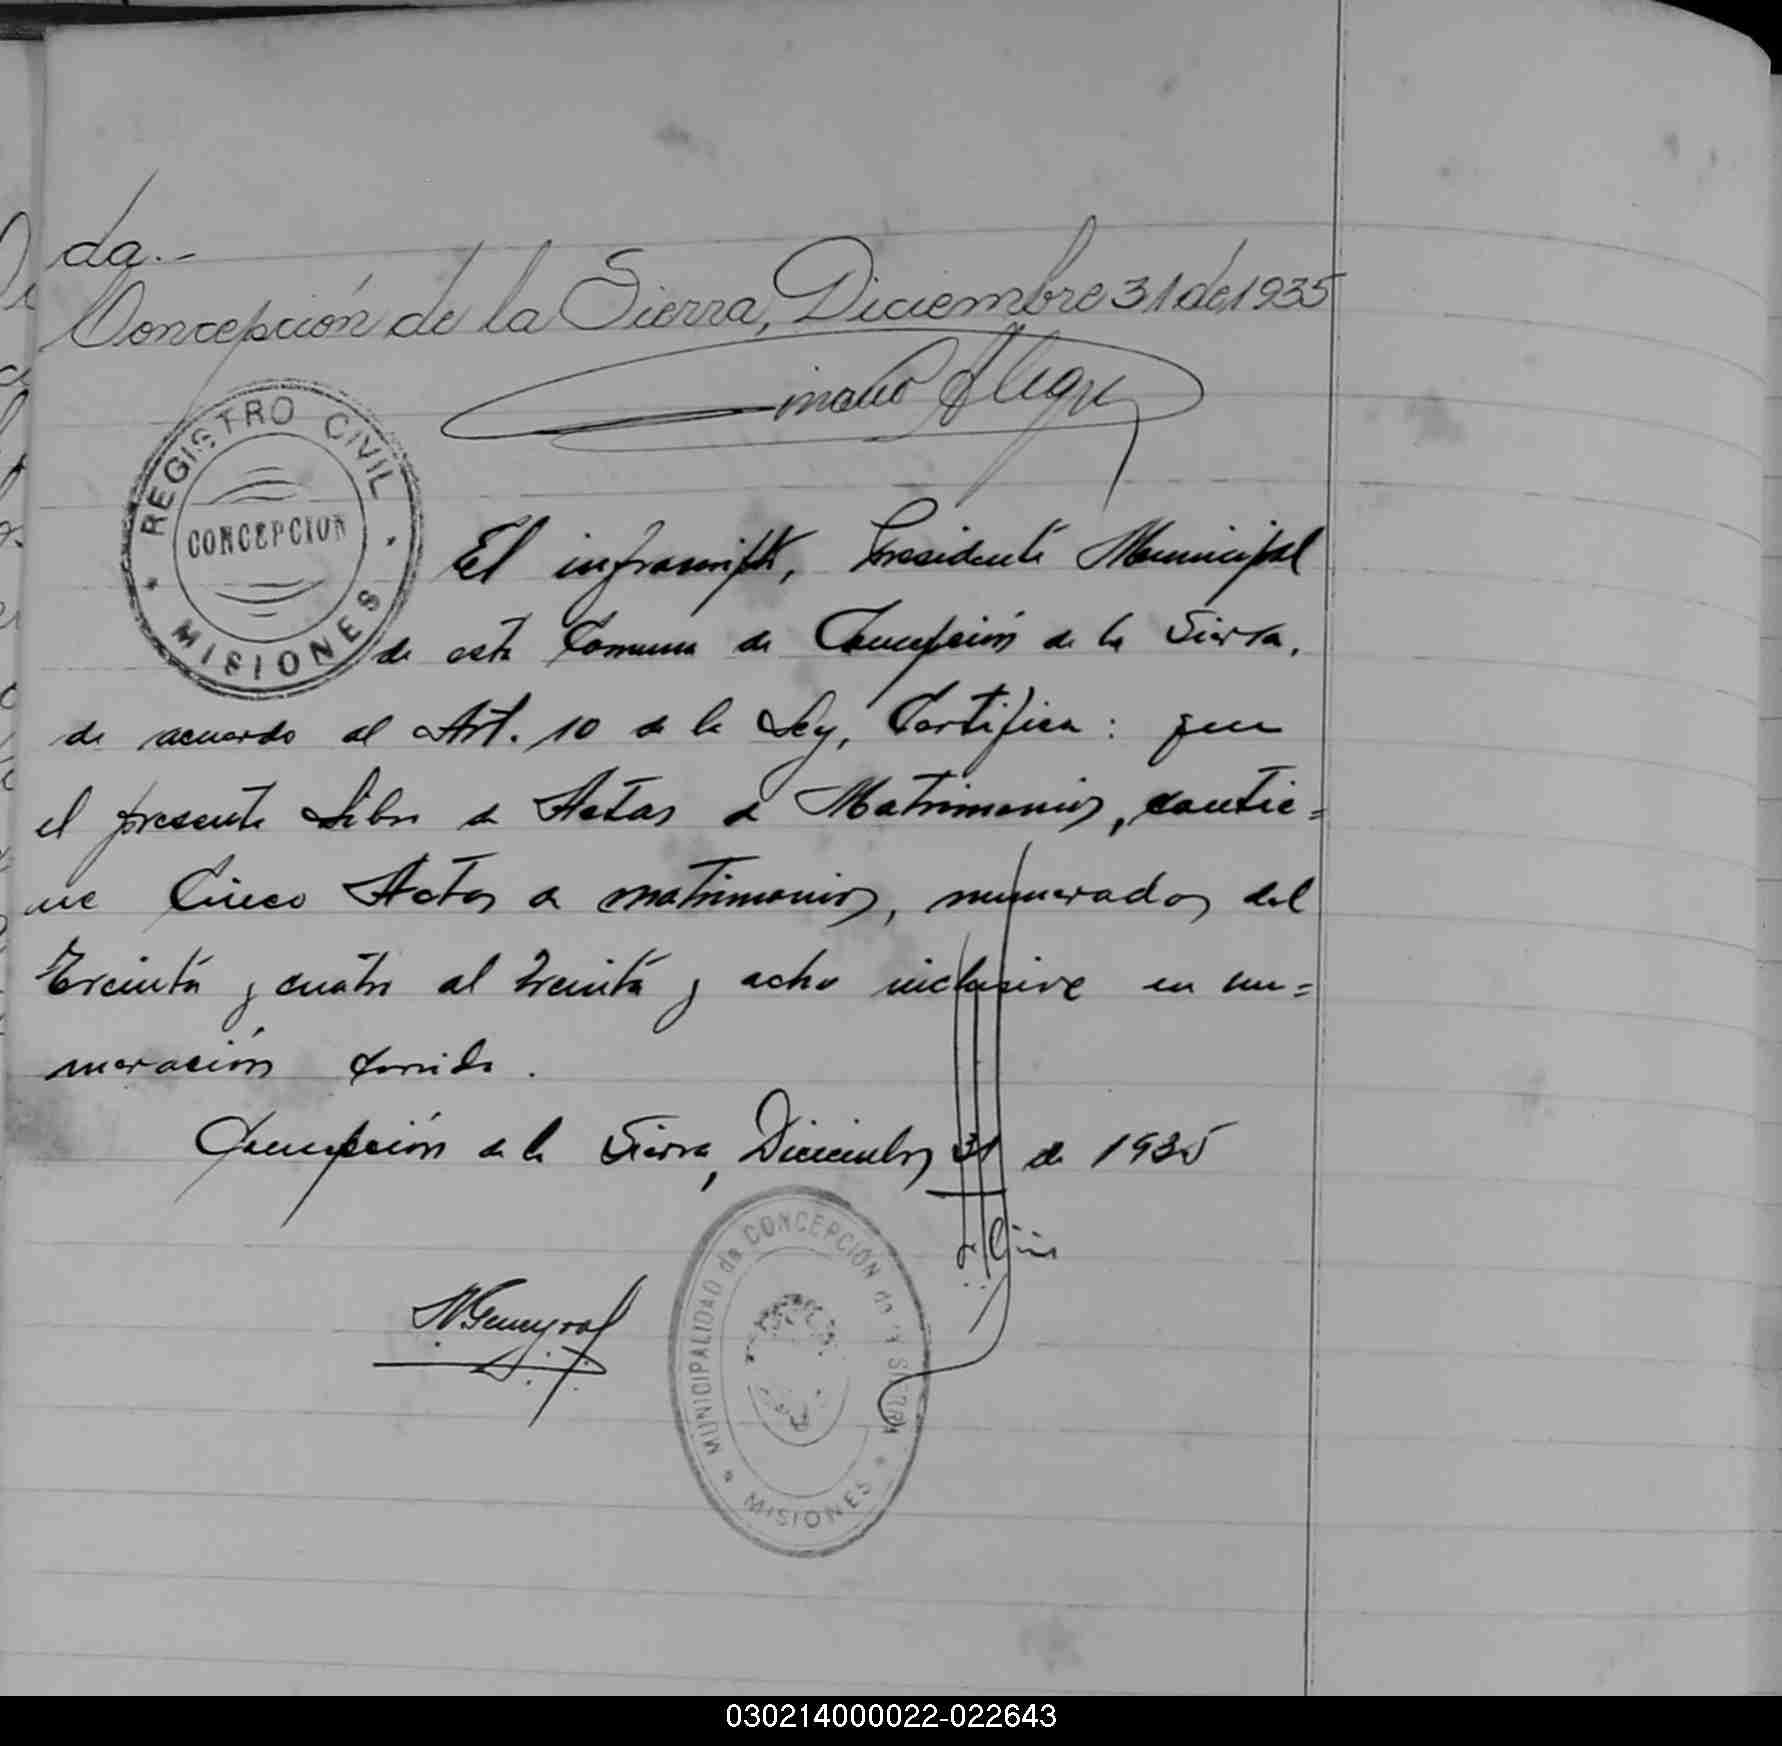 da.-
Concepción de la Sierra, Diciembre 31 de 1935
Alegre
REGISTRO CIVIL
CONCEPCION
MISIONES
El infrascripto, Presidente Municipal
de esta Comuna de Concepción de la Sierra,
de acuerdo al Art. 10 de la Ley, Certifica: que
el presente Libro de Actas de Matrimonios, contie=
ne Cinco Actas de matrimonios, numerados del
Treinta y cuatro al treinta y ocho inclusive en nu=
meración corrida.
Concepción de la Sierra, Diciembre 31 de 1935
MUNICIPALIDAD de CONCEPCIÓN de la SIERRA
MISIONES
030214000022-022643